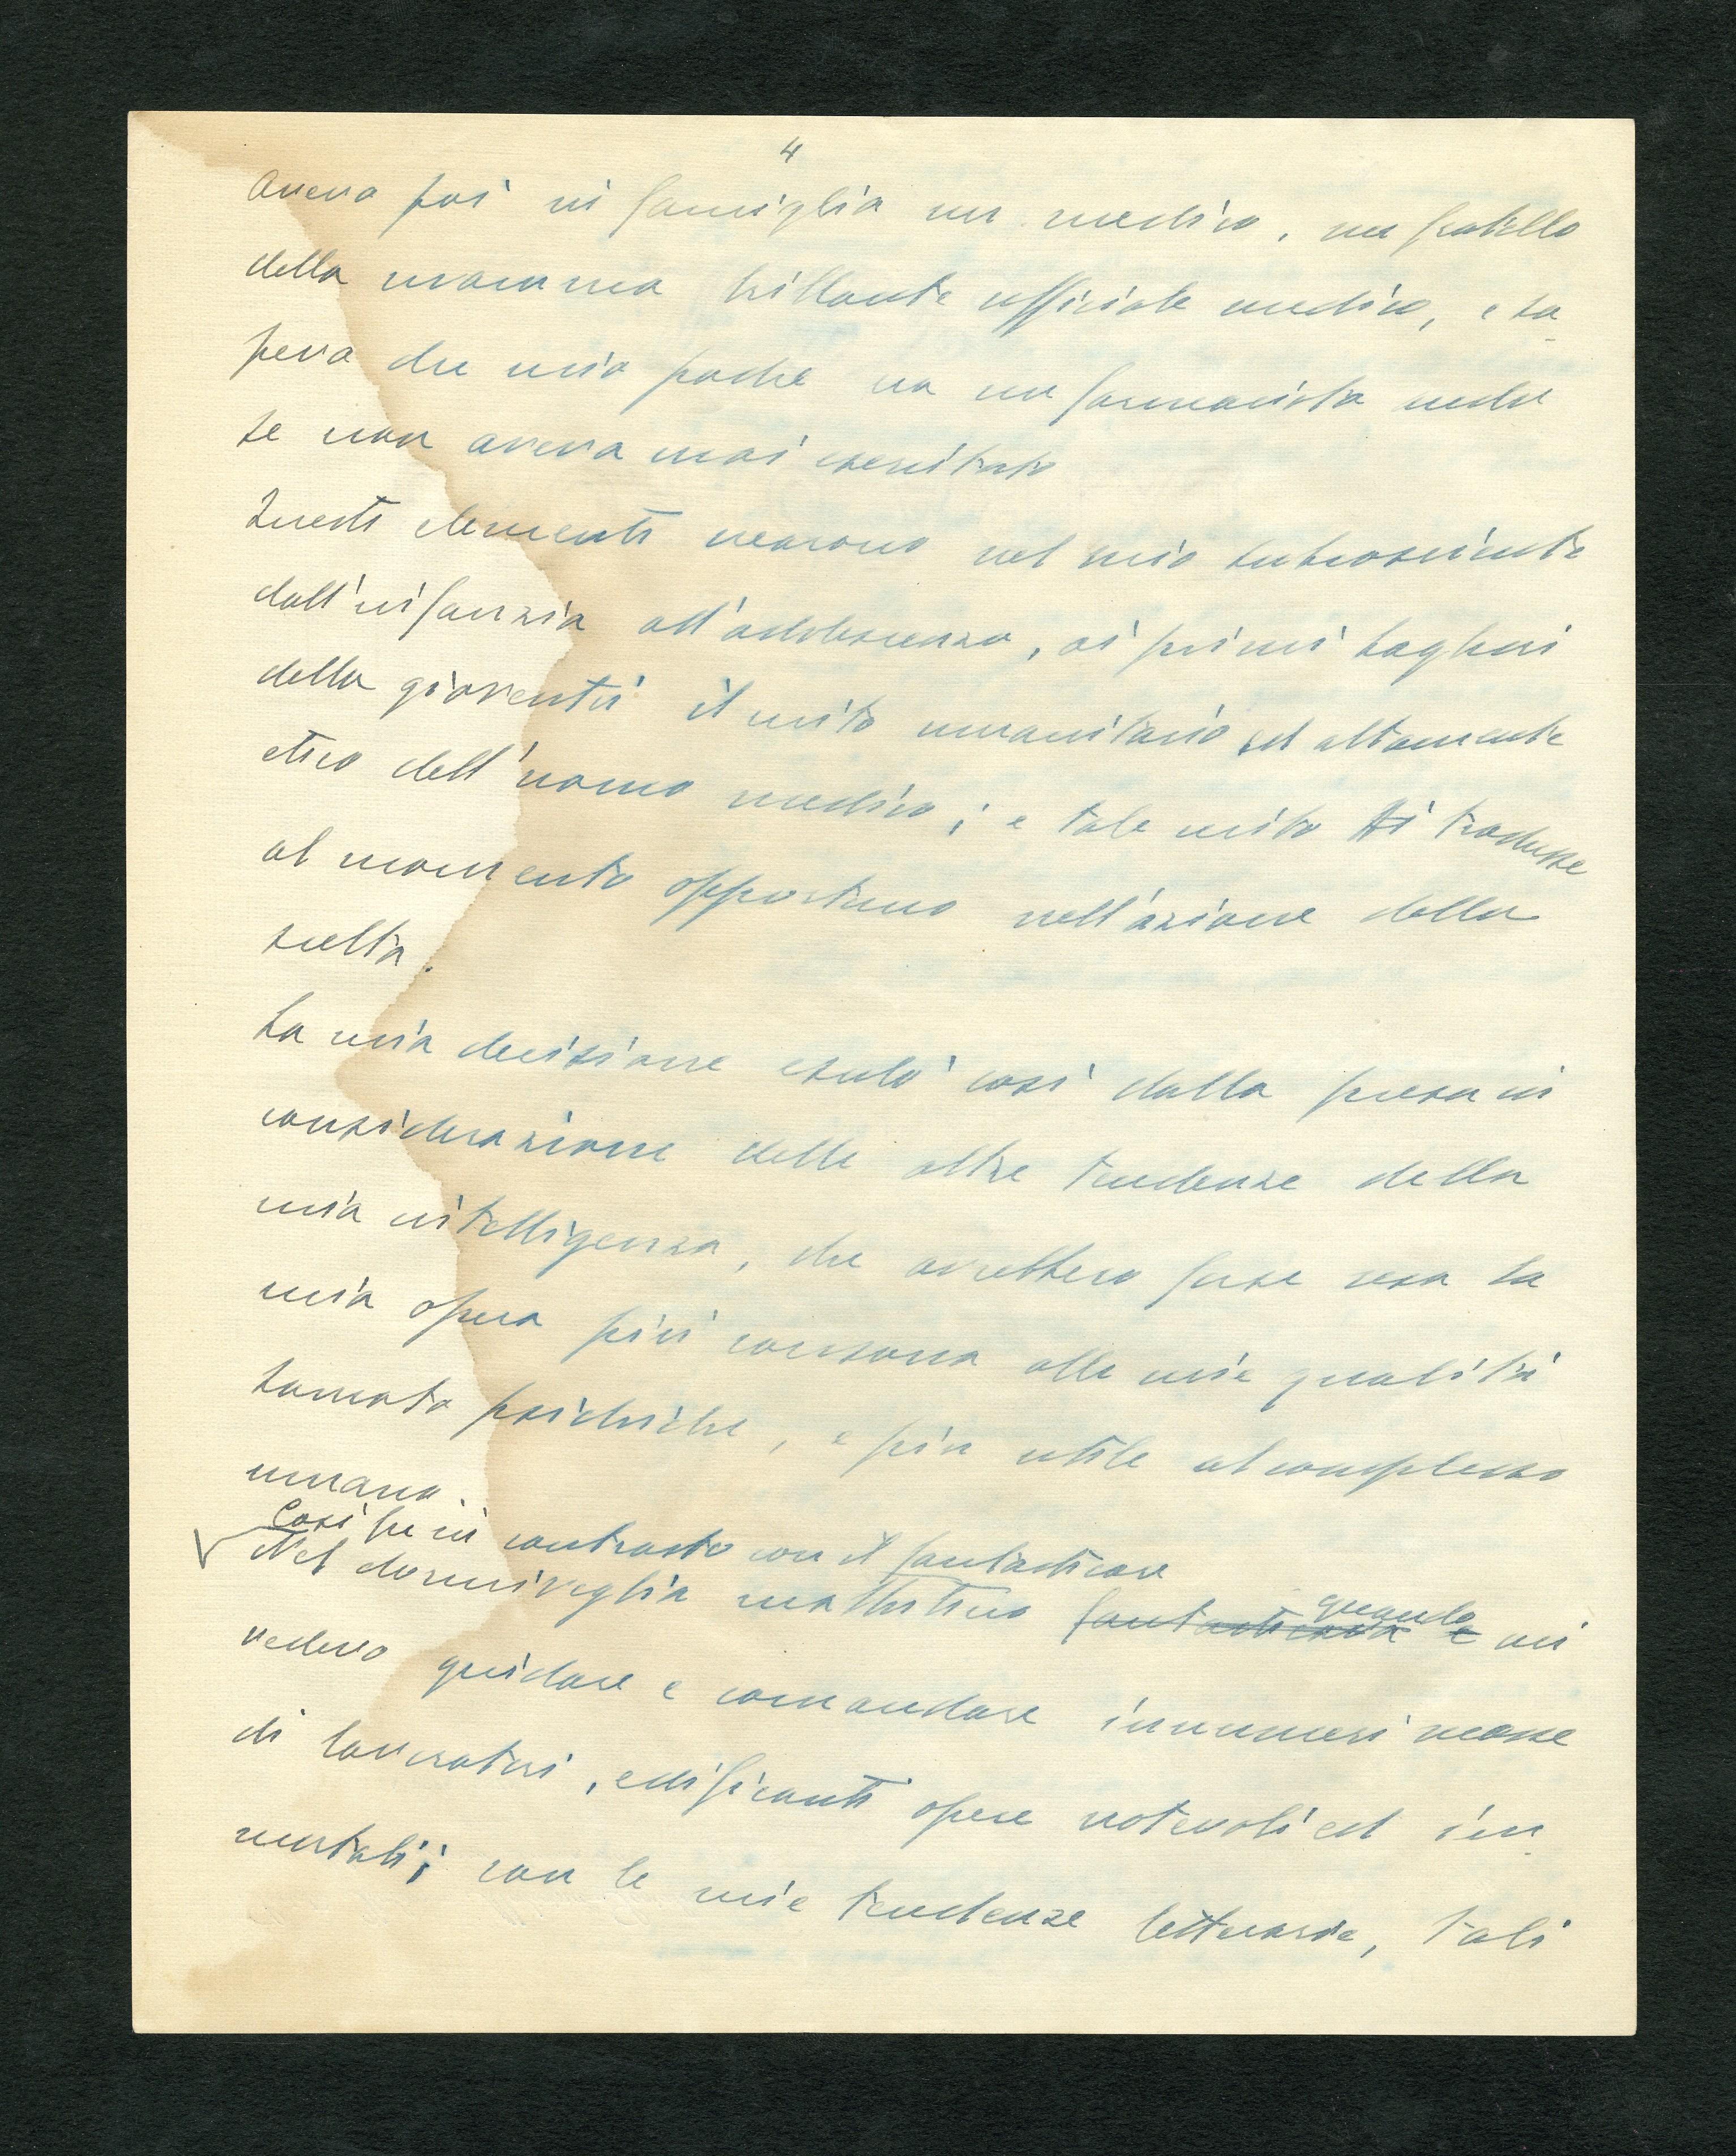 4
Avevo poi in famiglia un medico, un fratello
della mamma brillante ufficiale medico, e sa
peva che mio padre era un farmacista anche
se non aveva mai esercitato
Questi elementi crearono nel mio subcosciente
dall'infanzia all'adolescenza, ai primi bagliori
della gioventù il mito umanitario ed altamente
etico dell'uomo medico; e tale mito si tradusse
al momento opportuno nell'azione della
scelta.
La mia decisione esulò così dalla presa in
considerazione delle altre tendenze della
mia intelligenza, che avrebbero forse resa la
mia opera più consona alle mie qualità
somato psichiche, e più utile al complesso
umano.
Così fu in contrasto con il fantasticare
Nel dormiveglia mattutino fantasticavo e quando mi
vedevo guidare e comandare innumeri masse
di lavoratori, edificanti opere notevoli ed im
mortali; con le mie tendenze letterarie, tali